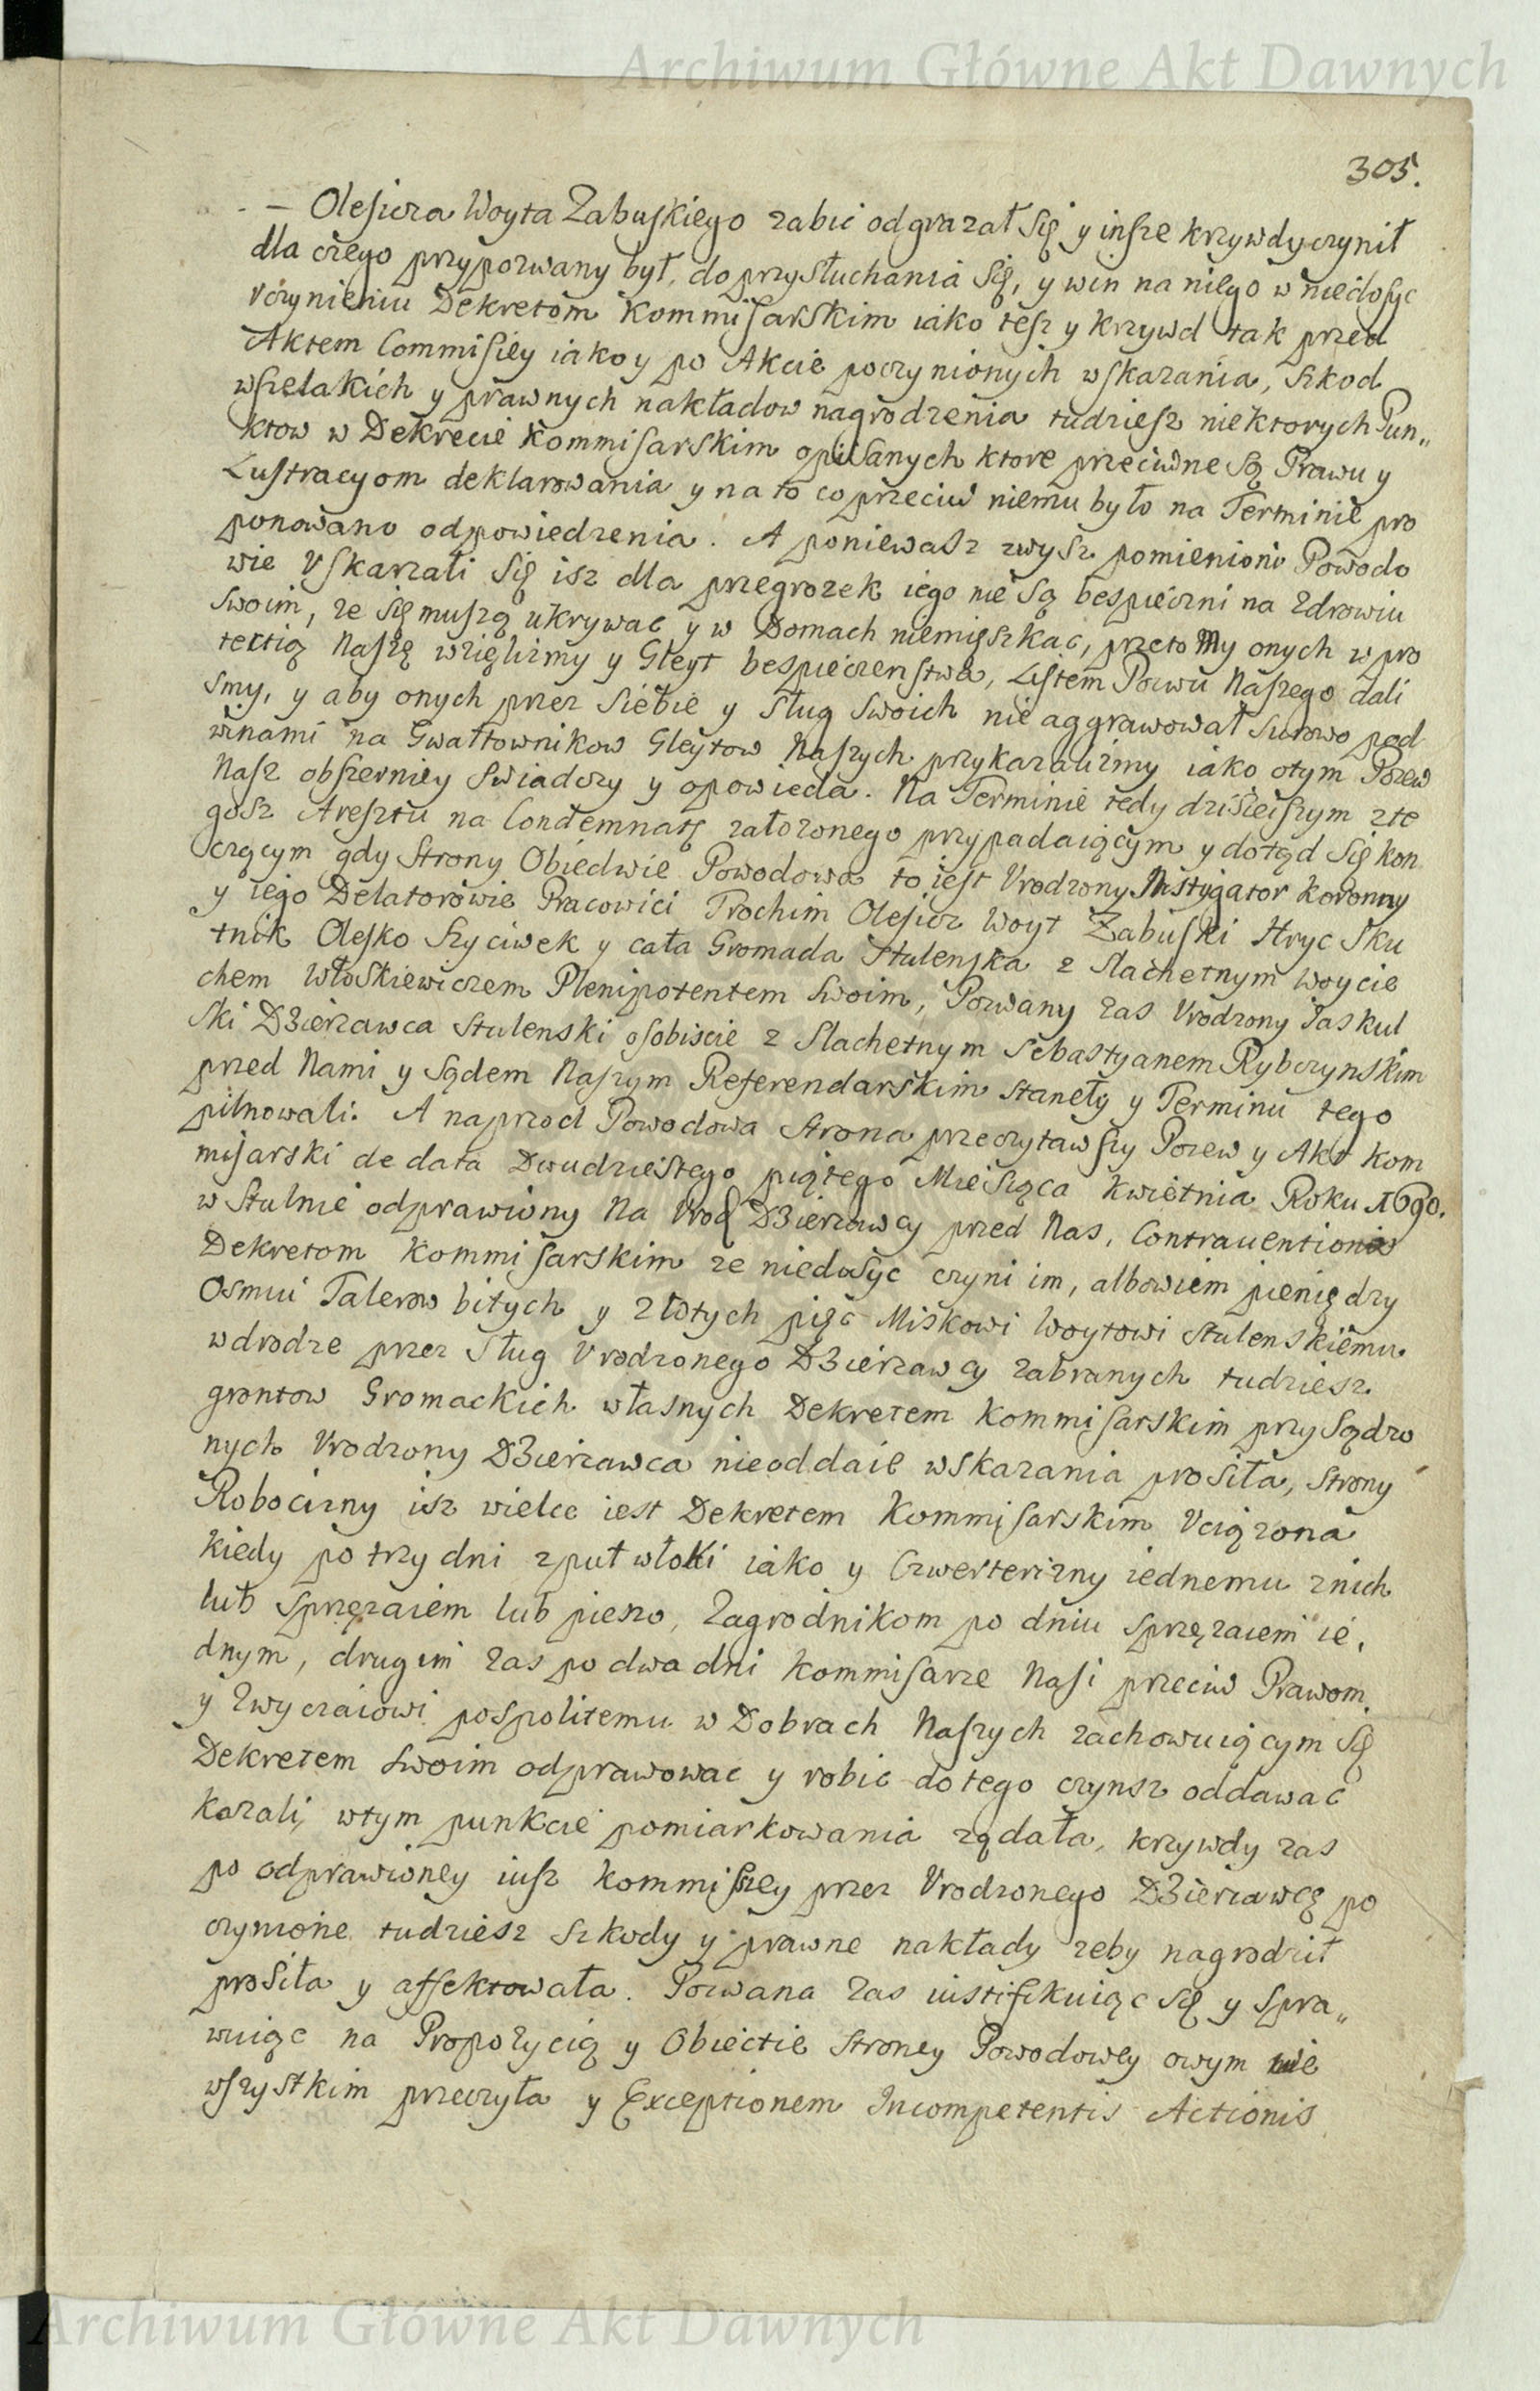 Archiwum Główne Akt Dawnych
305.
– Olesicza Woyta Zabuskiego zabic odgrazał się y insze krzywdy czynił
dla czego przypozwany był, do przysłuchania się, y win na niego w niedosyc
Vczynieniu Dekretom Kommisarskim iako tesz y krzywd tak przed
Aktem Commisiey iako y po Akcie poczynionych wskazania, szkod
wszelakich y prawnych nakładow nagrodzenia tudziesz niektorych Pun„
ktow w Dekrecie Kommisarskim opisanych ktore przeciwne są Prawu y
Lustracyom deklarowania y na to co przeciw niemu było na Terminie pro
ponowano odpowiedzenia. A poniewasz zwysz pomienioni Powodo
wie Vskarzali się isz dla przegrozek iego nie są bespieczni na zdrowiu
swoim, ze się muszą ukrywac y w Domach niemięszkac, przeto My onych w pro
tectią Naszę wzięlizmy y Gleyt bespieczenstwa, Listem Pozwu Naszego dali
smy, y aby onych przez siebie y sług swoich nie aggrawował surowo pod
winami na Gwałtownikow Gleytow Naszych przykazalizmy iako otym Pozew
Nasz obszerniey swiadczy y opowieda. Na Terminie tedy dzisieiszym zte
gosz Aresztu na Condemnatę załozonego przypadaiącym y dotąd się kon
czącym gdy Strony Obiedwie Powodowa to iest Vrodzony Instygator Koronny
y iego Delatorowie Pracowici Trochim Olesicz Woyt Zabuski Hryc Sku
tnik Olesko Szyciwek y cała Gromada Stulenska z Slachetnym Woycie
chem Włoskiewiczem Plenipotentem swoim, Pozwany zas Vrodzony Jaskul
ski Dzierzawca Stulenski osobiscie z Slachetnym Sebastyanem Rybczynskim
przed Nami y Sądem Naszym Referendarskim stanęły y Terminu tego
pilnowali. A naprzod Powodowa strona przeczytawszy Pozew y Akt Kom
misarski de data Dwudziestego piątego Miesiąca Kwietnia Roku 1690.
w Stulnie odprawiony Na Vrod Dzierzawcy przed Nas, Contrauentionis
Dekretom Kommisarskim ze niedosyc czyni im, albowiem pieniędzy
Osmui Talerow bitych y złotych pięc Miskowi Woytowi Stulenskiemu
wdrodze przez sług Vrodzonego Dzierzawcy zabranych tudziesz
grontow Gromackich własnych Dekretem Kommisarskim przysądzo
nych Vrodzony Dzierzawca nieoddaie wskazania prosiła, strony
Robocizny isz wielce iest Dekretem Kommisarskim Vciązona
kiedy po trzy dni zpuł włoki iako y Czwerterizny iednemu znich
lub sprzęzaiem lub pieszo, Zagrodnikom po dniu sprzęzaiem ie,
dnym, drugim zas po dwa dni Kommisarze Nasi przeciw Prawom
y Zwyczaiowi pospolitemu w Dobrach Naszych zachowuiącym się
Dekretem swoim odprawowac y robic do tego czynsz oddawac
kazali, wtym punkcie pomiarkowania ządała, krzywdy zas
po odprawioney iusz Kommisiey przez Vrodzonego Dzierzawcę po
czynione tudziesz szkody y prawne nakłady zeby nagrodził
prosiła y affektowała. Pozwana zas iustifikuiąc się y spra„
wuiąc na Propozycią y Obiectie strony Powodowey owym nie
wszystkim przeczyła y Exceptionem Incompetentis Actionis
Archiwum Główne Akt Dawnych